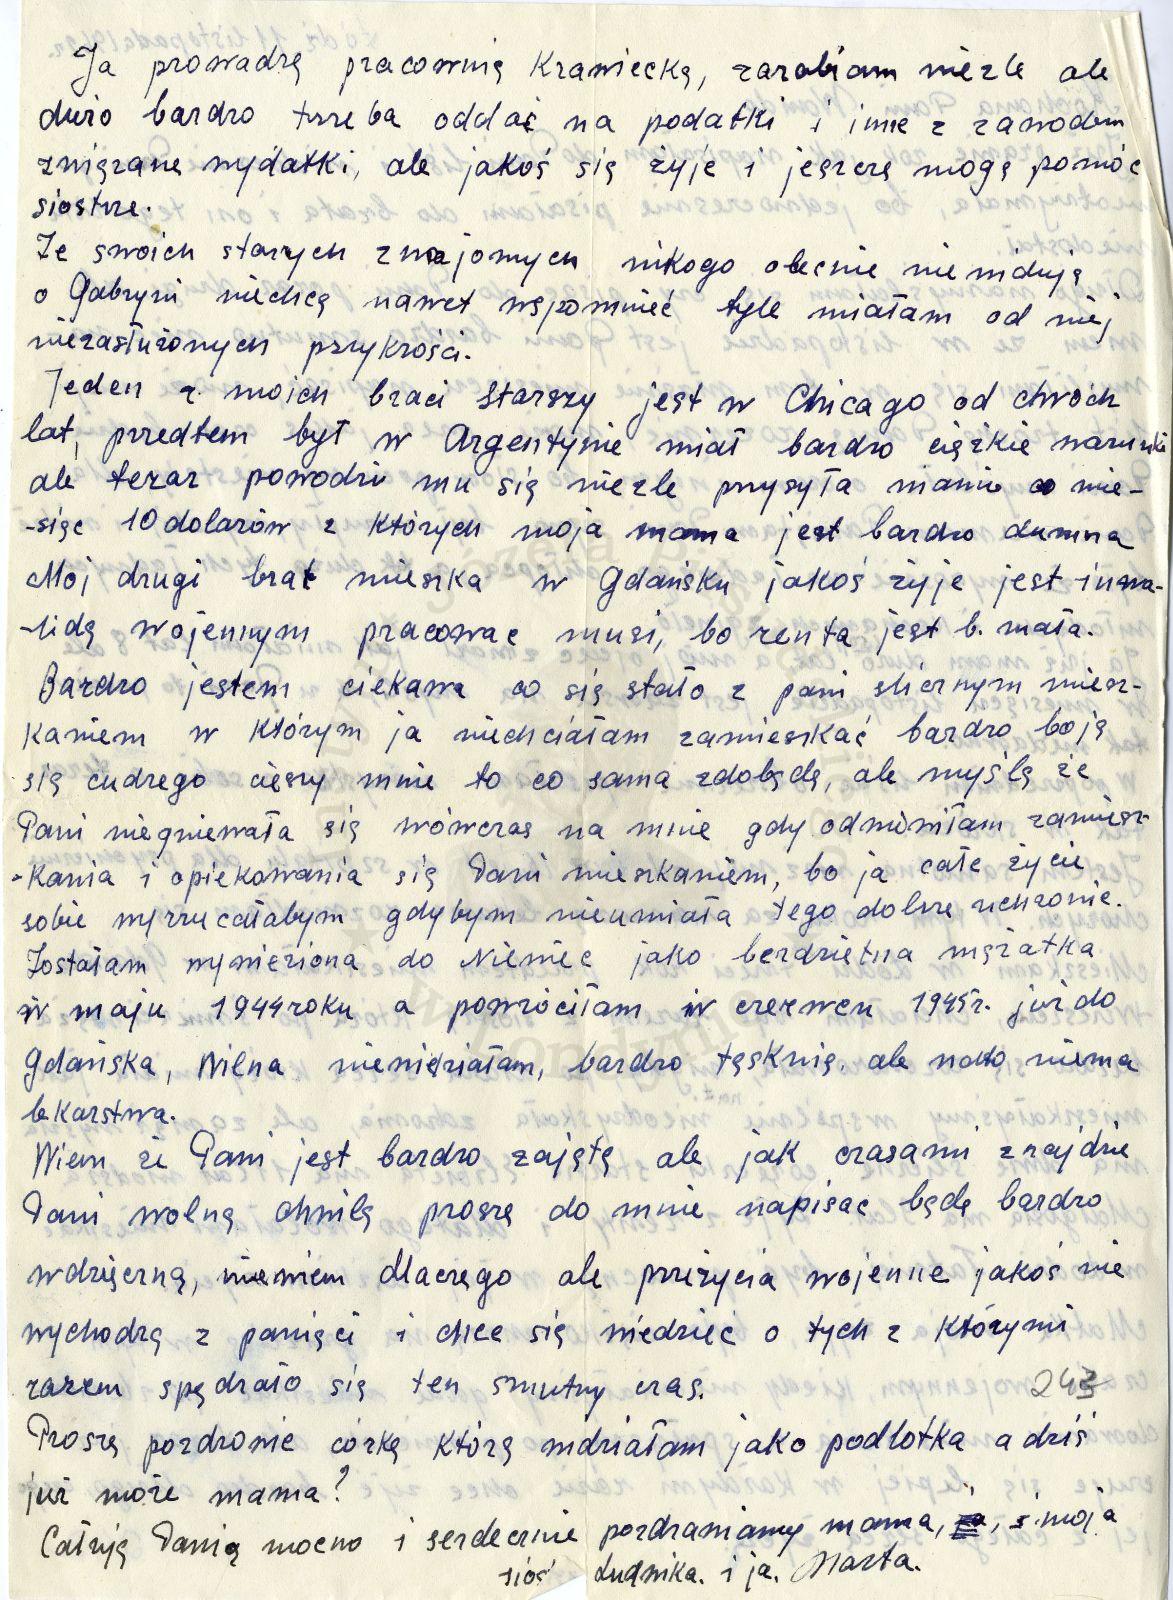 Ja prowadzę pracownię Krawiecką, zarabiam nieźle ale
dużo bardzo trzeba oddać na podatki i inne z zawodem
związane wydatki, ale jakoś się żyje i jeszczę mogę pomóc
siostrze.
Ze swoich starych znajomych nikogo obecnie niewidują
o Gabryni niechcą nawet wspomnieć tyle miałam od niej
niezasłużonych przykrości.
Jeden z moich braci starszy jest w Chicago od dwóch
lat, przedtem był w Argentynie miał bardzo ciężkie warunki
ale teraz powodzi mu się nieżle przysyła mamie co mie-
-siąc 10 dolarów z których moja mama jest bardzo dumna
Moj drugi brat mieszka w Gdańsku jakoś żyje jest inwa-
-lidą wojennym pracowac musi, bo renta jest b. mała.
Bardzo jestem ciekawa co się stało z pani slicznym miesz-
kaniem w którym ja niechciałam zamieszkać bardzo boję
się cudzego cieszy mnie to co sama zdobędę, ale myślę że
Pani niegniewała się wówczas na mnie gdy odmówiłam zamiesz-
-kania i opiekowania się Pani mieszkaniem, bo ja całe życie
sobie wyrzucałabym gdybym nieumiała tego dobrze uchronic.
Zostałam wywieziona do Niemiec jako bezdzietna mężatka
w maju 1944 roku a powróciłam w czerwcu 1945r. już do
Gdańska, Wilna niewidziałam, bardzo tęsknię, ale nato niema
lekarstwa.
Wiem że Pani jest bardzo zajętą ale jak czasami znajdzie
Pani wolną chwilę proszę do mnie napisać będę bardzo
wdzięczną, niewiem dlaczego ale przeżycia wojenne jakoś nie
wychodzą z pamięci i chce się wiedzieć o tych z którymi
razem spędzało się ten smutny czas.
243
Proszę pozdrowic córkę którą widziałam jako podlotka a dziś
już może mama?
Całuję Panią mocno i serdecznie pozdrawiamy mama, i moja
sios Ludwika. i ja. Marta.